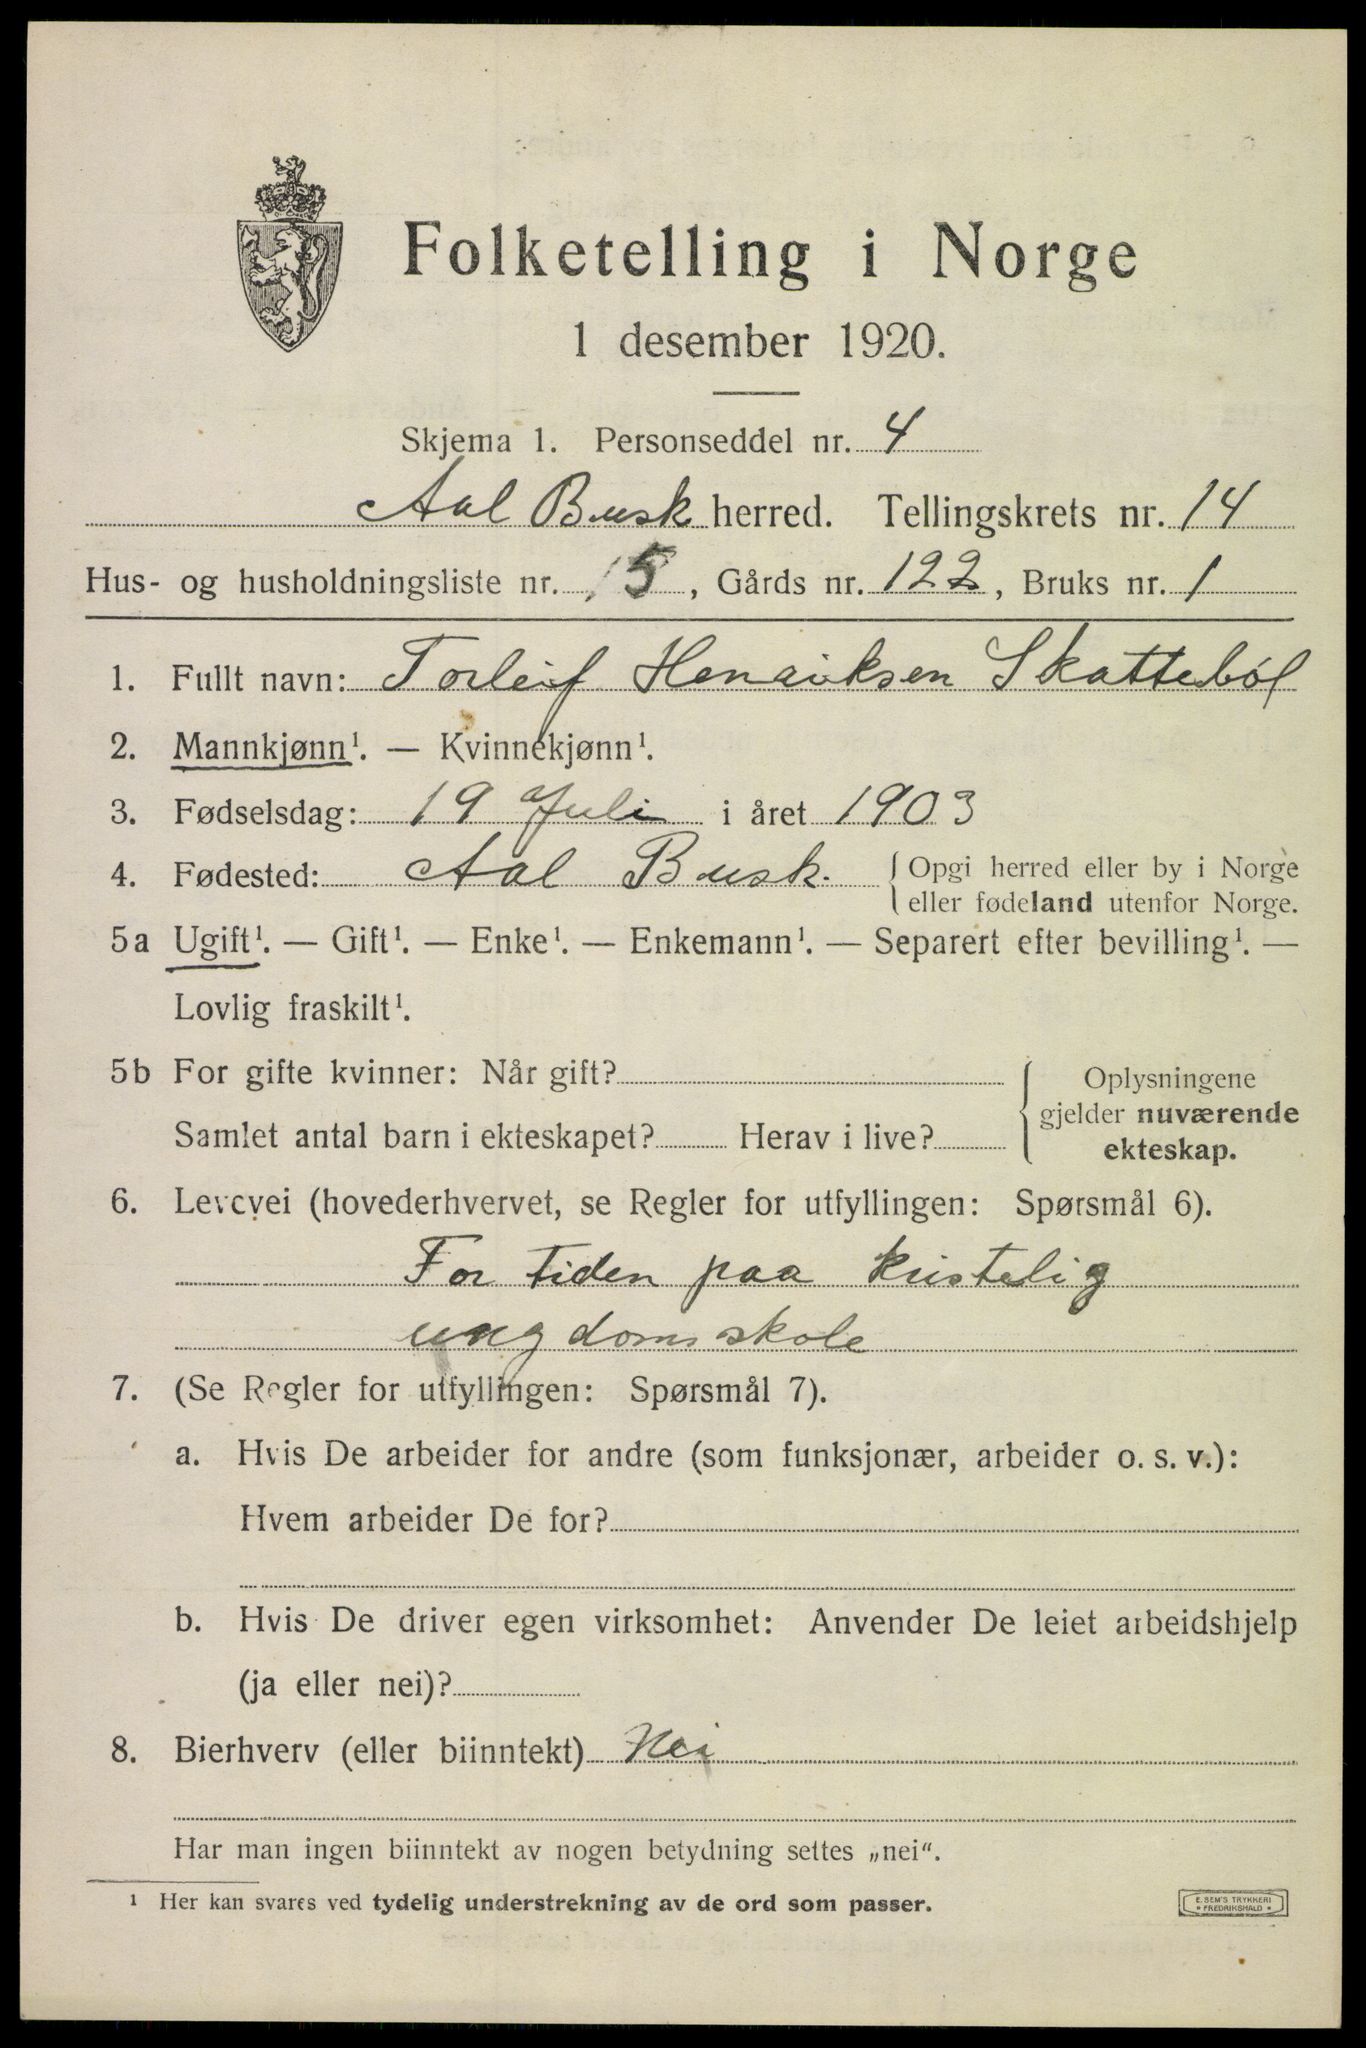 Folketelling i Norge
1 desember 1920.
Skjema 1. Personseddel nr. 4
Aal Busk herred. Tellingskrets nr. 14
Hus- og husholdningsliste nr. 15, Gårds nr. 122, Bruks nr. 1
1. Fullt navn: Torleif Henriksen Skattebøl
2. Mannkjønn¹. — Kvinnekjønn¹.
3. Fødselsdag: 19 Juli i året 1903
4. Fødested: Aal Busk. { Opgi herred eller by i Norge
eller fødeland utenfor Norge.
5a Ugift¹. — Gift¹. — Enke¹. — Enkemann¹. — Separert efter bevilling¹. —
Lovlig fraskilt¹.
5b For gifte kvinner: Når gift?
Samlet antal barn i ekteskapet? Herav i live?
Oplysningene
gjelder nuværende
ekteskap.
6. Levevei (hovederhvervet, se Regler for utfyllingen: Spørsmål 6).
For tiden paa kristelig
ungdomsskole
7. (Se Regler for utfyllingen: Spørsmål 7).
a. Hvis De arbeider for andre (som funksjonær, arbeider o. s. v.):
Hvem arbeider De for?
b. Hvis De driver egen virksomhet: Anvender De leiet arbeidshjelp
(ja eller nei)?
8. Bierhverv (eller biinntekt) Nei
Har man ingen biinntekt av nogen betydning settes „nei“.
¹ Her kan svares ved tydelig understrekning av de ord som passer.
E. SEM'S TRYKKERI
* FREDRIKSHALD *